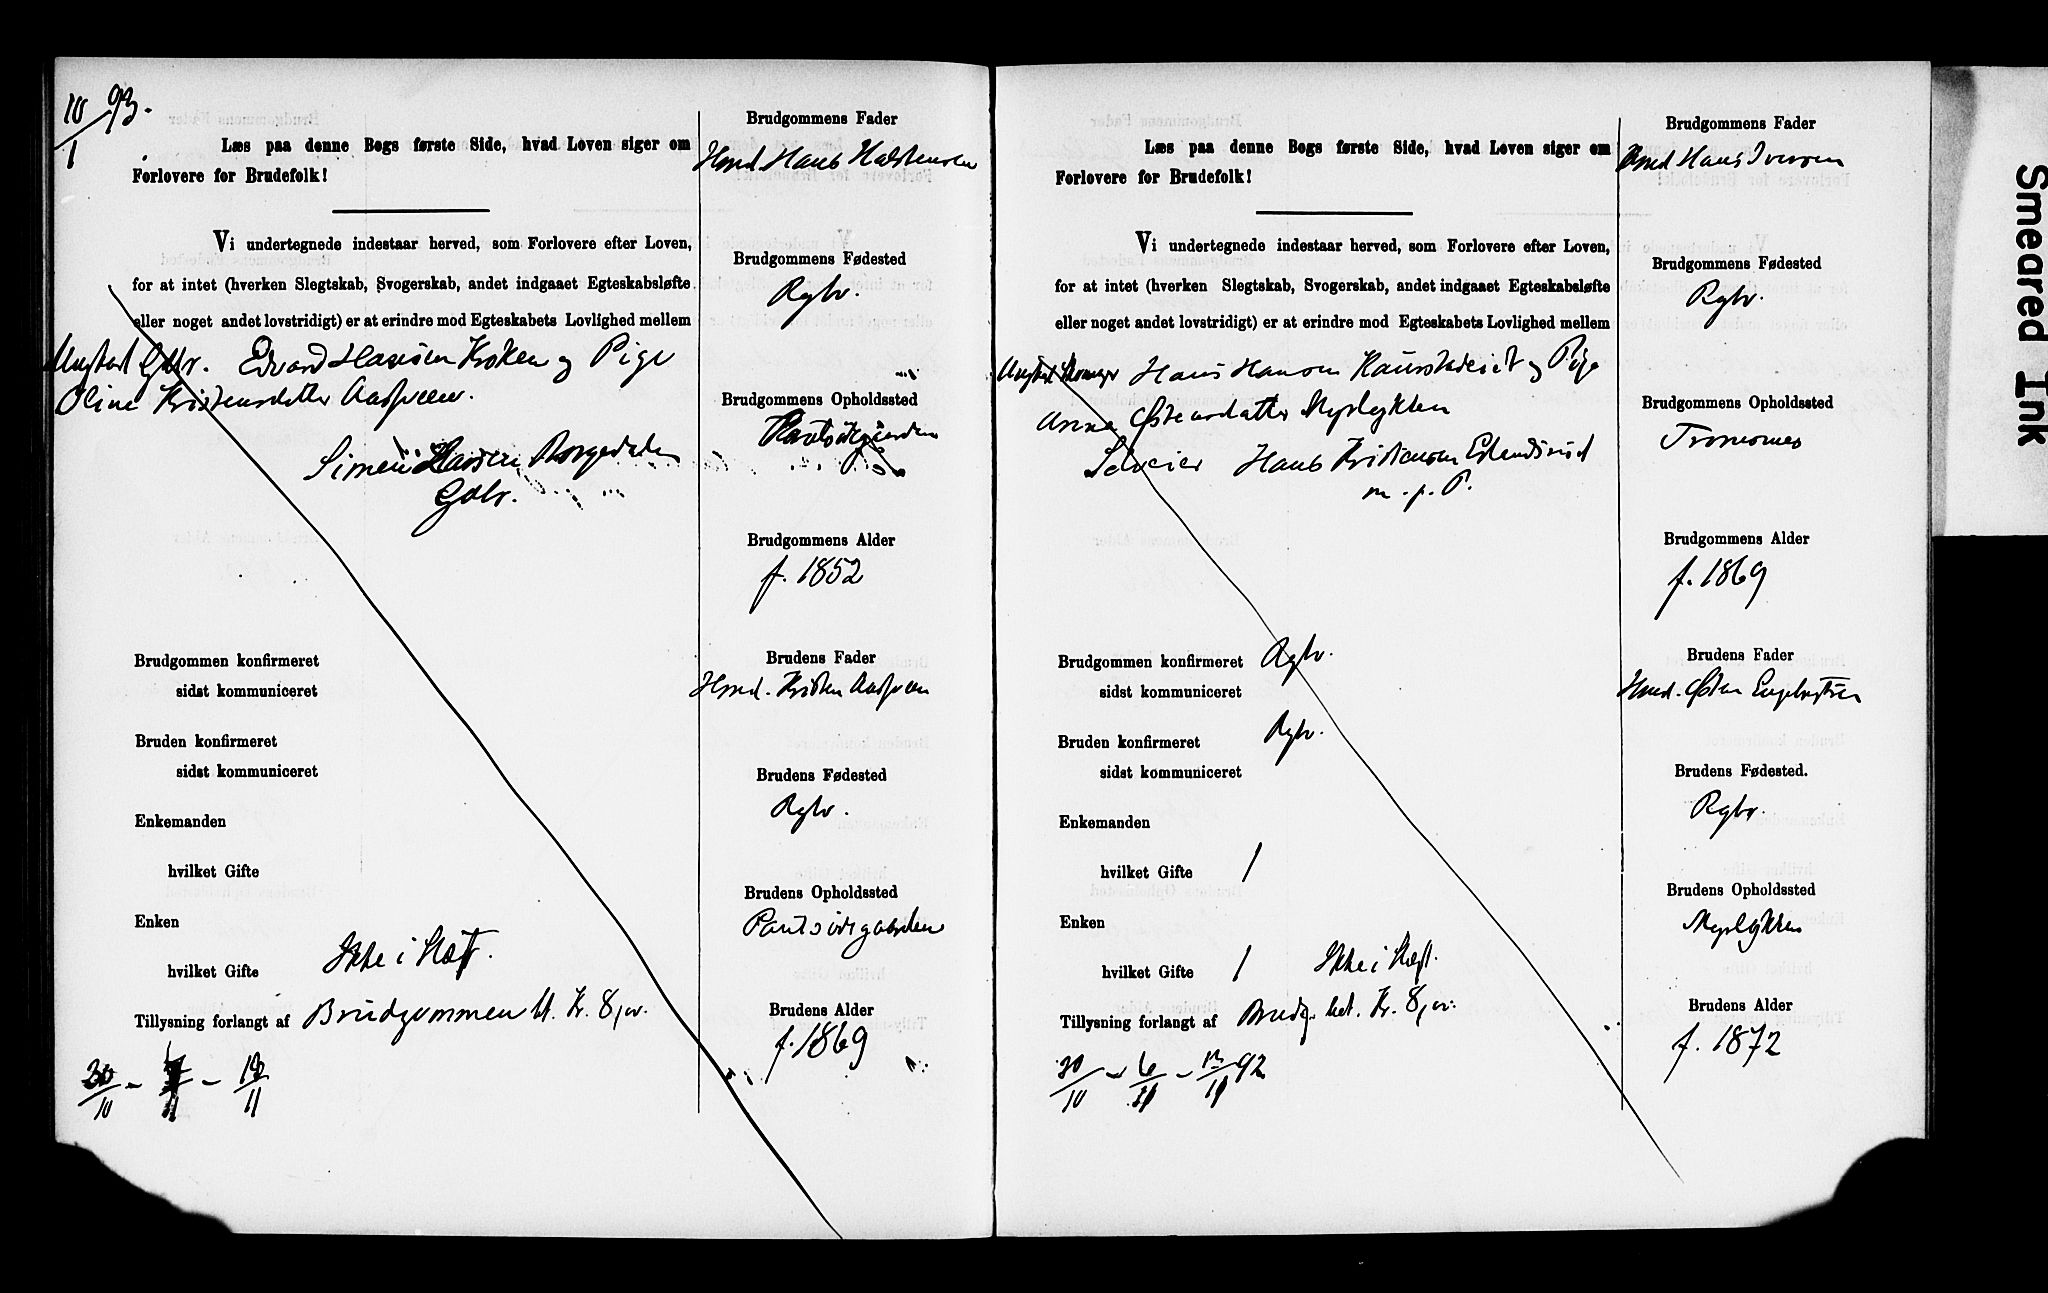 10/1 93.
Læs paa denne Bogs første Side, hvad Loven siger om
Forlovere for Brudefolk!
Vi undertegnede indestaar herved, som Forlovere efter Loven,
for at intet (hverken Slegtskab, Svogerskab, andet indgaaet Egteskabsløfte
eller noget andet lovstridigt) er at erindre mod Egteskabets Lovlighed mellem
Ungkarl Gbr. Edvard Hansen Kroken og Pige
Oline Kristensdatter Aasveen.
Simen Hansen
Gbr.
Brudgommen konfirmeret
sidst kommuniceret
Bruden konfirmeret
sidst kommuniceret
Enkemanden
hvilket Gifte
Enken
hvilket Gifte Ikke i Slægt.
Tillysning forlangt af Brudgommen bt. Kr. 8,00.
30/10 - - 13/11
Brudgommens Fader
Hmd. Hans Halstensen
Brudgommens Fødested
Rgbr.
Brudgommens Opholdssted
Brudgommens Alder
f. 1852
Brudens Fader
Hmd. Kristen Aasveen
Brudens Fødested
Rgbr.
Brudens Opholdssted
Brudens Alder
f. 1869
Læs paa denne Bogs første Side, hvad Loven siger om
Forlovere for Brudefolk!
Vi undertegnede indestaar herved, som Forlovere efter Loven,
for at intet (hverken Slegtskab, Svogerskab, andet indgaaet Egteskabsløfte
eller noget andet lovstridigt) er at erindre mod Egteskabets Lovlighed mellem
Ungkarl Hans Hansen og Pige
Anna Østensdatter Myrlykken
Selveier Hans Kristiansen
m. p. P.
Brudgommen konfirmeret Rgbr.
sidst kommuniceret
Bruden konfirmeret Rgbr.
sidst kommuniceret
Enkemanden
hvilket Gifte 1
Enken
hvilket Gifte 1 Ikke i Slægt.
Tillysning forlangt af Brudg. bet. Kr. 8,00.
30/10 - 6/11 - 13/11 92
Brudgommens Fader
Hmd. Hans Iversen
Brudgommens Fødested
Rgbr.
Brudgommens Opholdssted
Tromsnes
Brudgommens Alder
f. 1869
Brudens Fader
Hmd. Østen Engebretsen
Brudens Fødested.
Rgbr.
Brudens Opholdssted
Myrlykken
Brudens Alder
f. 1872
Smeared Ink